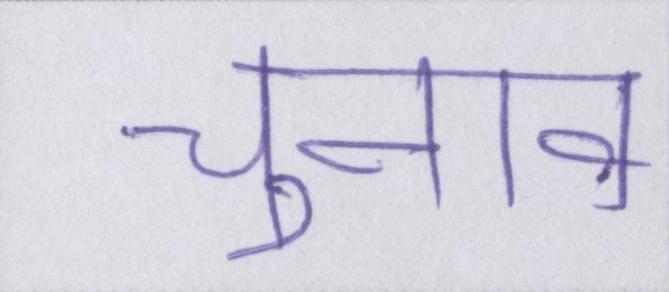 चुनाव